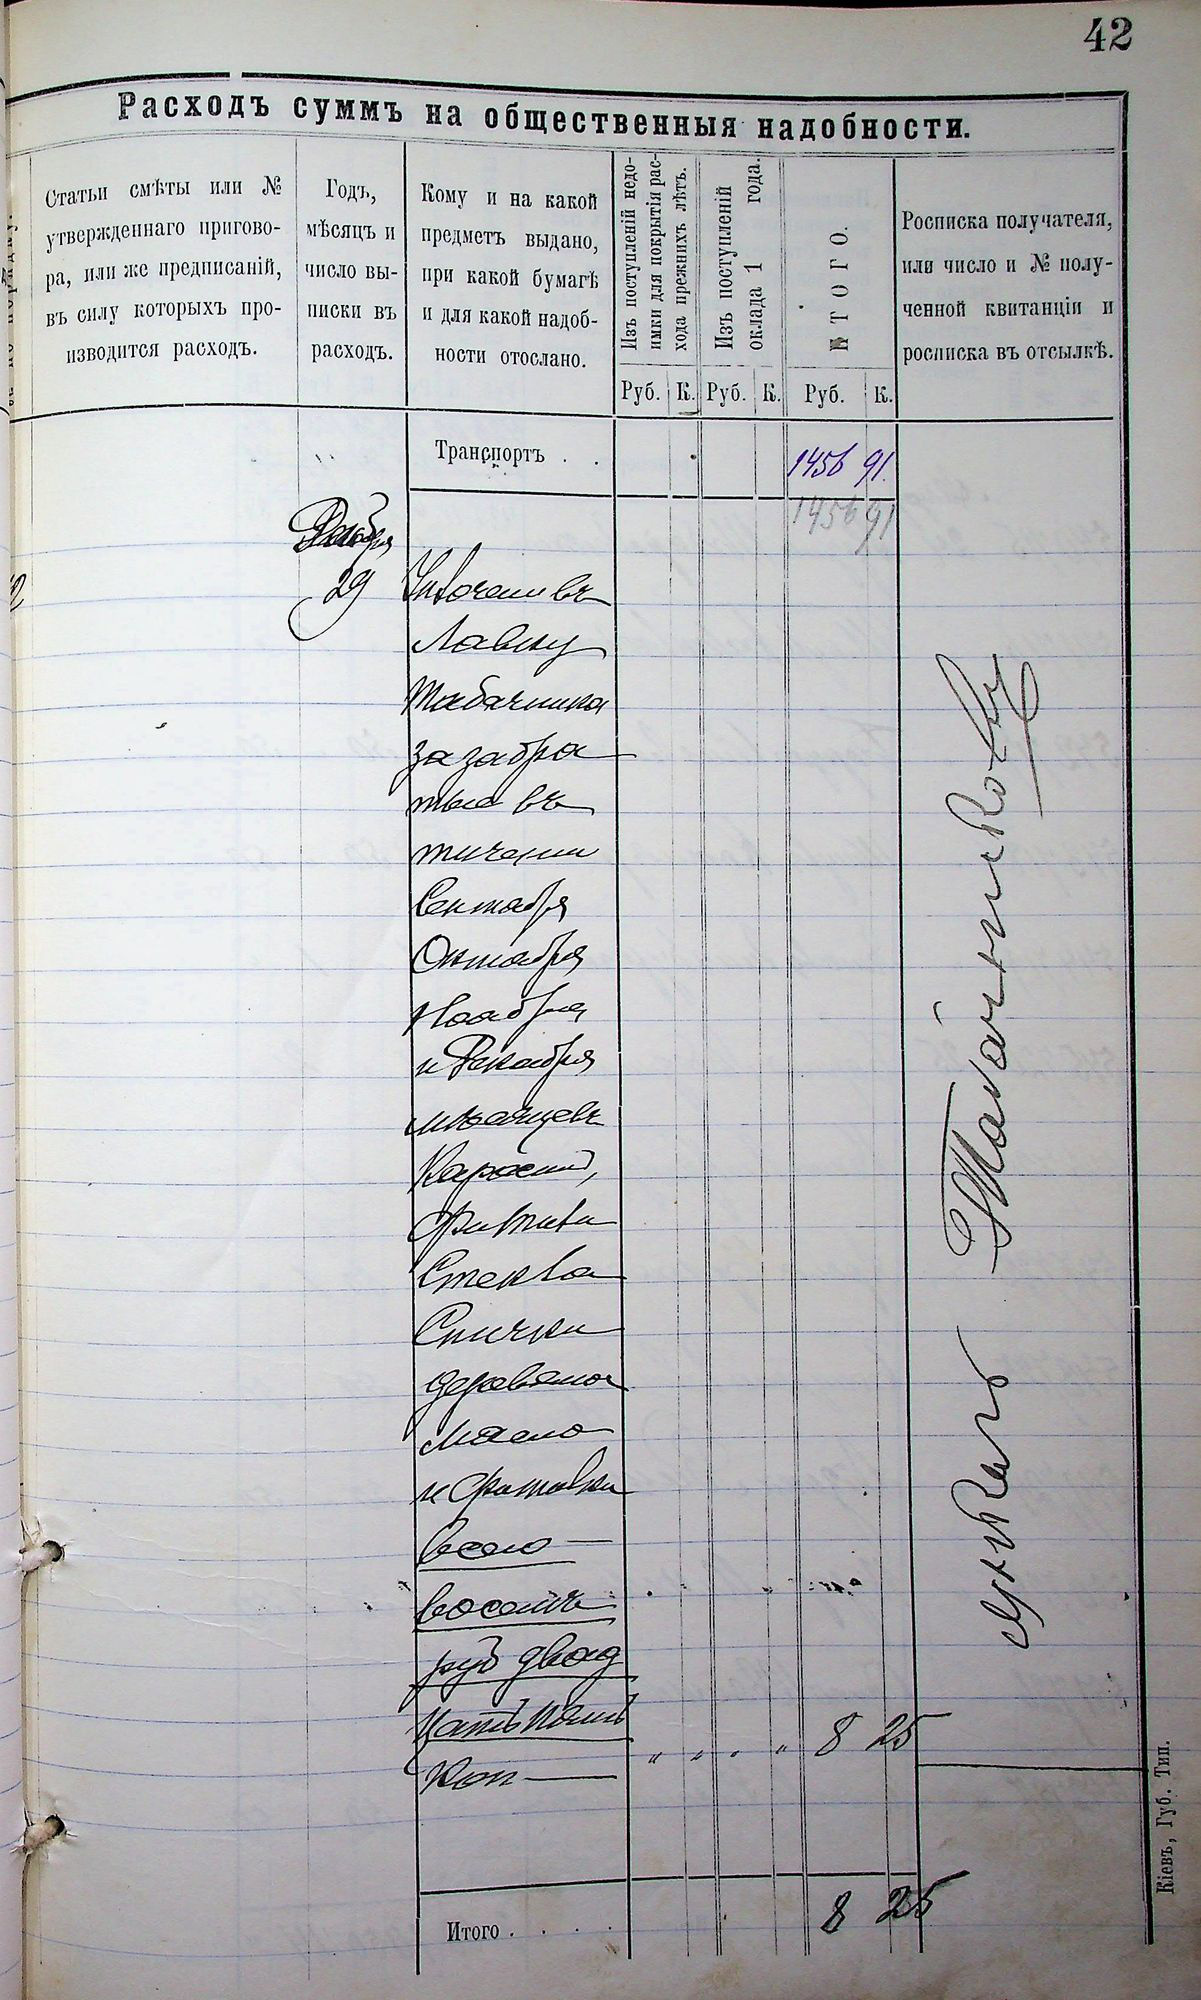 42
Расходъ суммъ на общественныя надобности.
Статьи смѣты или №
утвержденнаго пригово-
ра, или же предписаній,
въ силу которыхъ про-
изводится расходъ.
Годъ,
мѣсяцъ и
число вы-
писки въ
расходъ.
Кому и на какой
предметъ выдано,
при какой бумагѣ
и для какой надоб-
ности отослано.
Изъ поступленій недо-
имки для покрытія рас-
хода прежнихъ лѣтъ.
Изъ поступленій
оклада 1 года.
ИТОГО.
Росписка получателя,
или число и № полу-
ченной квитанціи и
росписка въ отсылкѣ.
Руб. К. Руб. К. Руб. К.
Транспортъ . . 1456 91.
1456 91
Декабря
29 Уплочени въ
Лавку
Табачника
за забра
тые въ
тичении
Сентября
Октября
Ноября
и Декабря
мѣсяцевъ
Каросинъ,
Фитили
Стекла
Спички
деревяное
масло
и
всего —
восемъ
руб двад
цать пять
Коп — " " " " 8 25
Итого . . . . 8 25
Кіевъ, Губ. Тип.